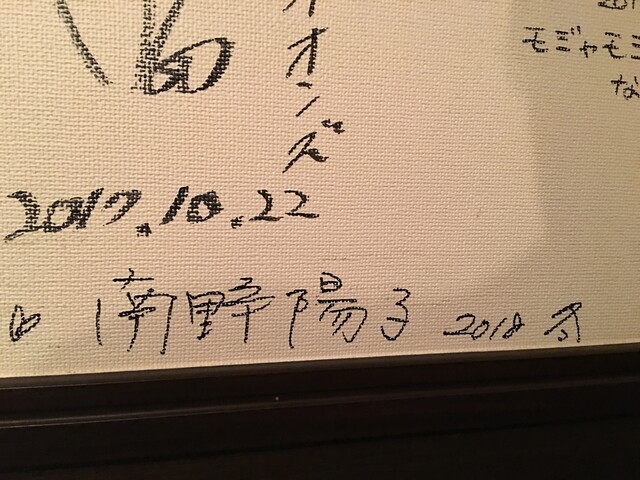 オンズ
モジャモジ
な
2017.10.22
南野陽子 2018 冬